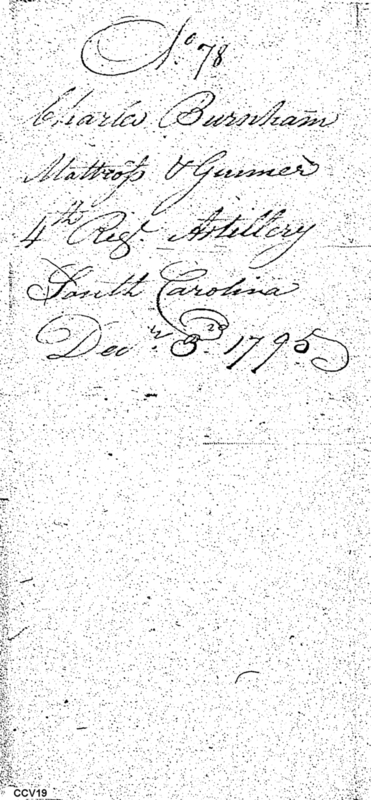 No 78
Charles Burnham
Mattross & Gunner
4th Regt. Artillery
South Carolina
Decr. 3rd. 1795
CCV19